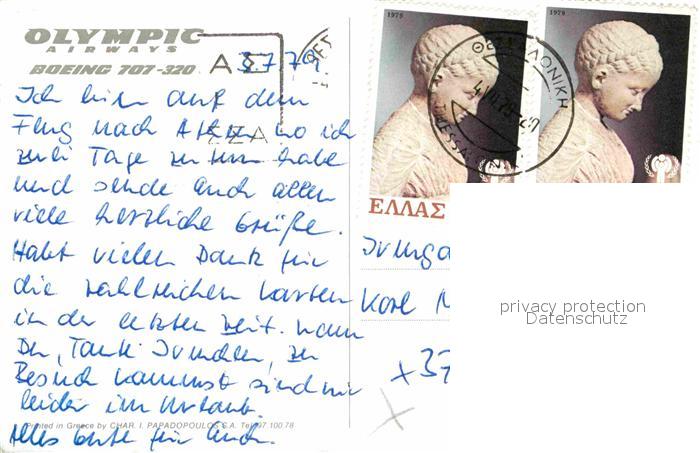 OLYMPIC
AIRWAYS
BOEING 707-320
3.7.79
Ich bin auf dem
Flug nach Athen wo ich
zwei Tage zu tun habe
und sende Euch allen
viele herzliche Grüße.
Habt vielen Dank für
die zahlreichen Karten
in der letzten Zeit. Wenn
Du, Tante Irmchen, zu
Besuch kommst sind wir
leider im Urlaub.
Printed in Greece by CHAR. I. PAPADOPOULOS S.A. Tel. 97.100.78
Alles Gute für Euch.
1979
1979
ΘΕΣΣΑΛΟΝΙΚΗ
ΕΛΛΑΣ
Irmga
Karl M
x 37
privacy protection
Datenschutz